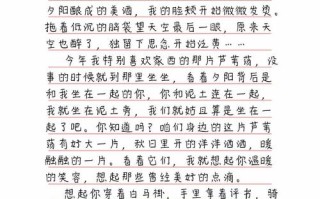 夕阳酿成的美酒，我的脸颊开始微微发
拖着低沉的脑袋望天空最后一眼，原来天
空也醉了，独留下思念开始泛黄……
今年我特别喜欢家西的那片芦苇荡，没
事的时候就到那里坐坐，看着夕阳背后是
和我坐在一起的你，你和泥土连在一起，
我就坐在泥土旁，我们就姑且算是坐在一
起了吧。你知道吗？咱们身边的这片芦苇
荡有好大一片，秋日里开的洋洋洒洒，暖
融融的一片。看着它们，我就想起你温暖
的笑容，想起那些曾经美好的点滴。
想起你穿着白马褂，手里拿着评书，骑